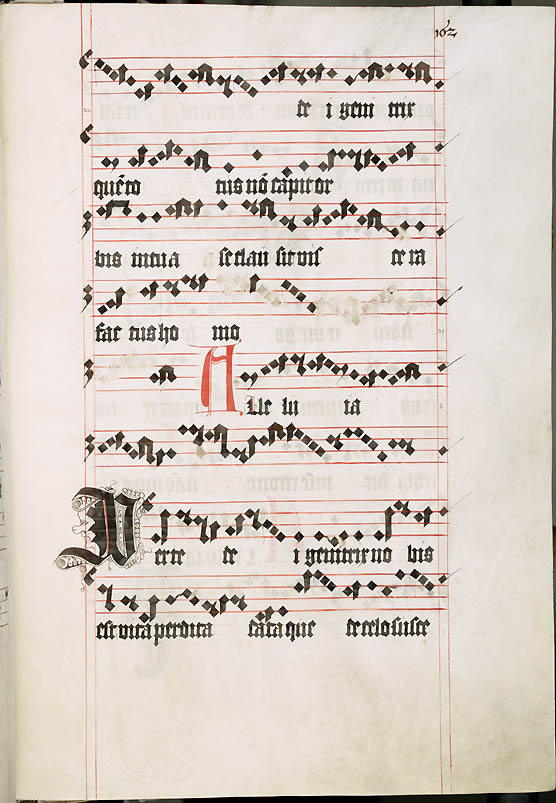 162
de i geni trix
quē to tus nō capit or
bis in tua se clau sit vis ce ra
fac tus ho mo
Alle lu ia
Per te de i genitrix no bis
est vita perdita data que de celo susce